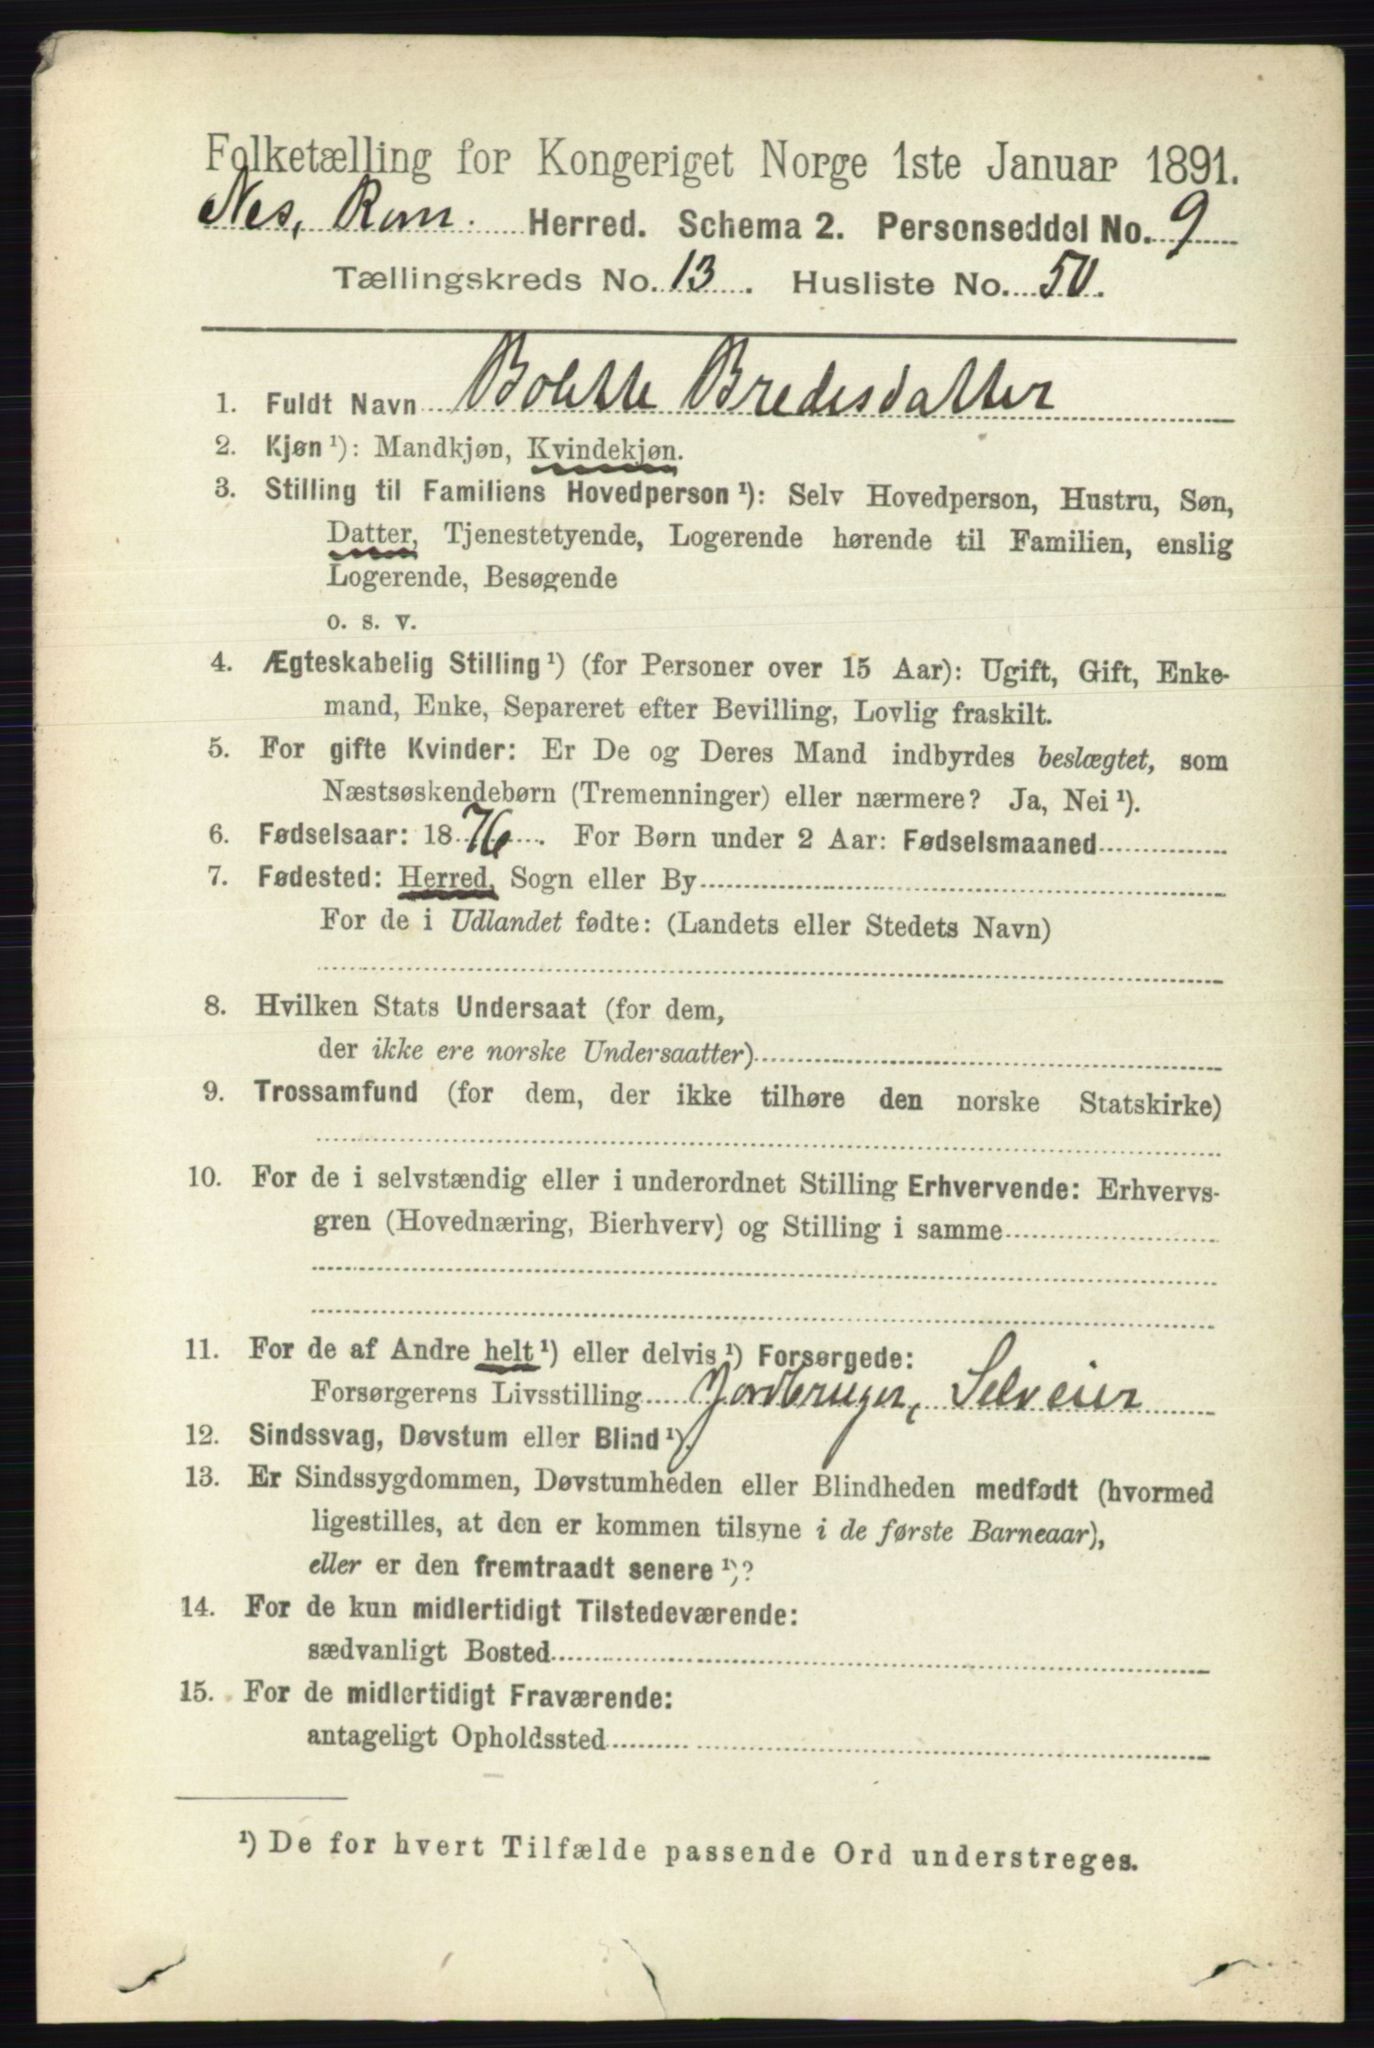 Folketælling for Kongeriget Norge 1ste Januar 1891.
Nes, Rom. Herred. Schema 2. Personseddel No. 9
Tællingskreds No. 13. Husliste No. 50.
1. Fuldt Navn Bolette Bredesdatter
2. Kjøn ¹): Mandkjøn, Kvindekjøn.
3. Stilling til Familiens Hovedperson ¹): Selv Hovedperson, Hustru, Søn,
Datter, Tjenestetyende, Logerende hørende til Familien, enslig
Logerende, Besøgende
o. s. v.
4. Ægteskabelig Stilling ¹) (for Personer over 15 Aar): Ugift, Gift, Enke-
mand, Enke, Separeret efter Bevilling, Lovlig fraskilt.
5. For gifte Kvinder: Er De og Deres Mand indbyrdes beslægtet, som
Næstsøskendebørn (Tremenninger) eller nærmere? Ja, Nei ¹).
6. Fødselsaar: 1876. For Børn under 2 Aar: Fødselsmaaned
7. Fødested: Herred, Sogn eller By
For de i Udlandet fødte: (Landets eller Stedets Navn)
8. Hvilken Stats Undersaat (for dem,
der ikke ere norske Undersaatter)
9. Trossamfund (for dem, der ikke tilhøre den norske Statskirke)
10. For de i selvstændig eller i underordnet Stilling Erhvervende: Erhvervs-
gren (Hovednæring, Bierhverv) og Stilling i samme
11. For de af Andre helt ¹) eller delvis ¹) Forsørgede:
Forsørgerens Livsstilling Jordbruger, Selveier
12. Sindssvag, Døvstum eller Blind ¹).
13. Er Sindssygdommen, Døvstumheden eller Blindheden medfødt (hvormed
ligestilles, at den er kommen tilsyne i de første Barneaar),
eller er den fremtraadt senere ¹)?
14. For de kun midlertidigt Tilstedeværende:
sædvanligt Bosted
15. For de midlertidigt Fraværende:
antageligt Opholdssted
¹) De for hvert Tilfælde passende Ord understreges.